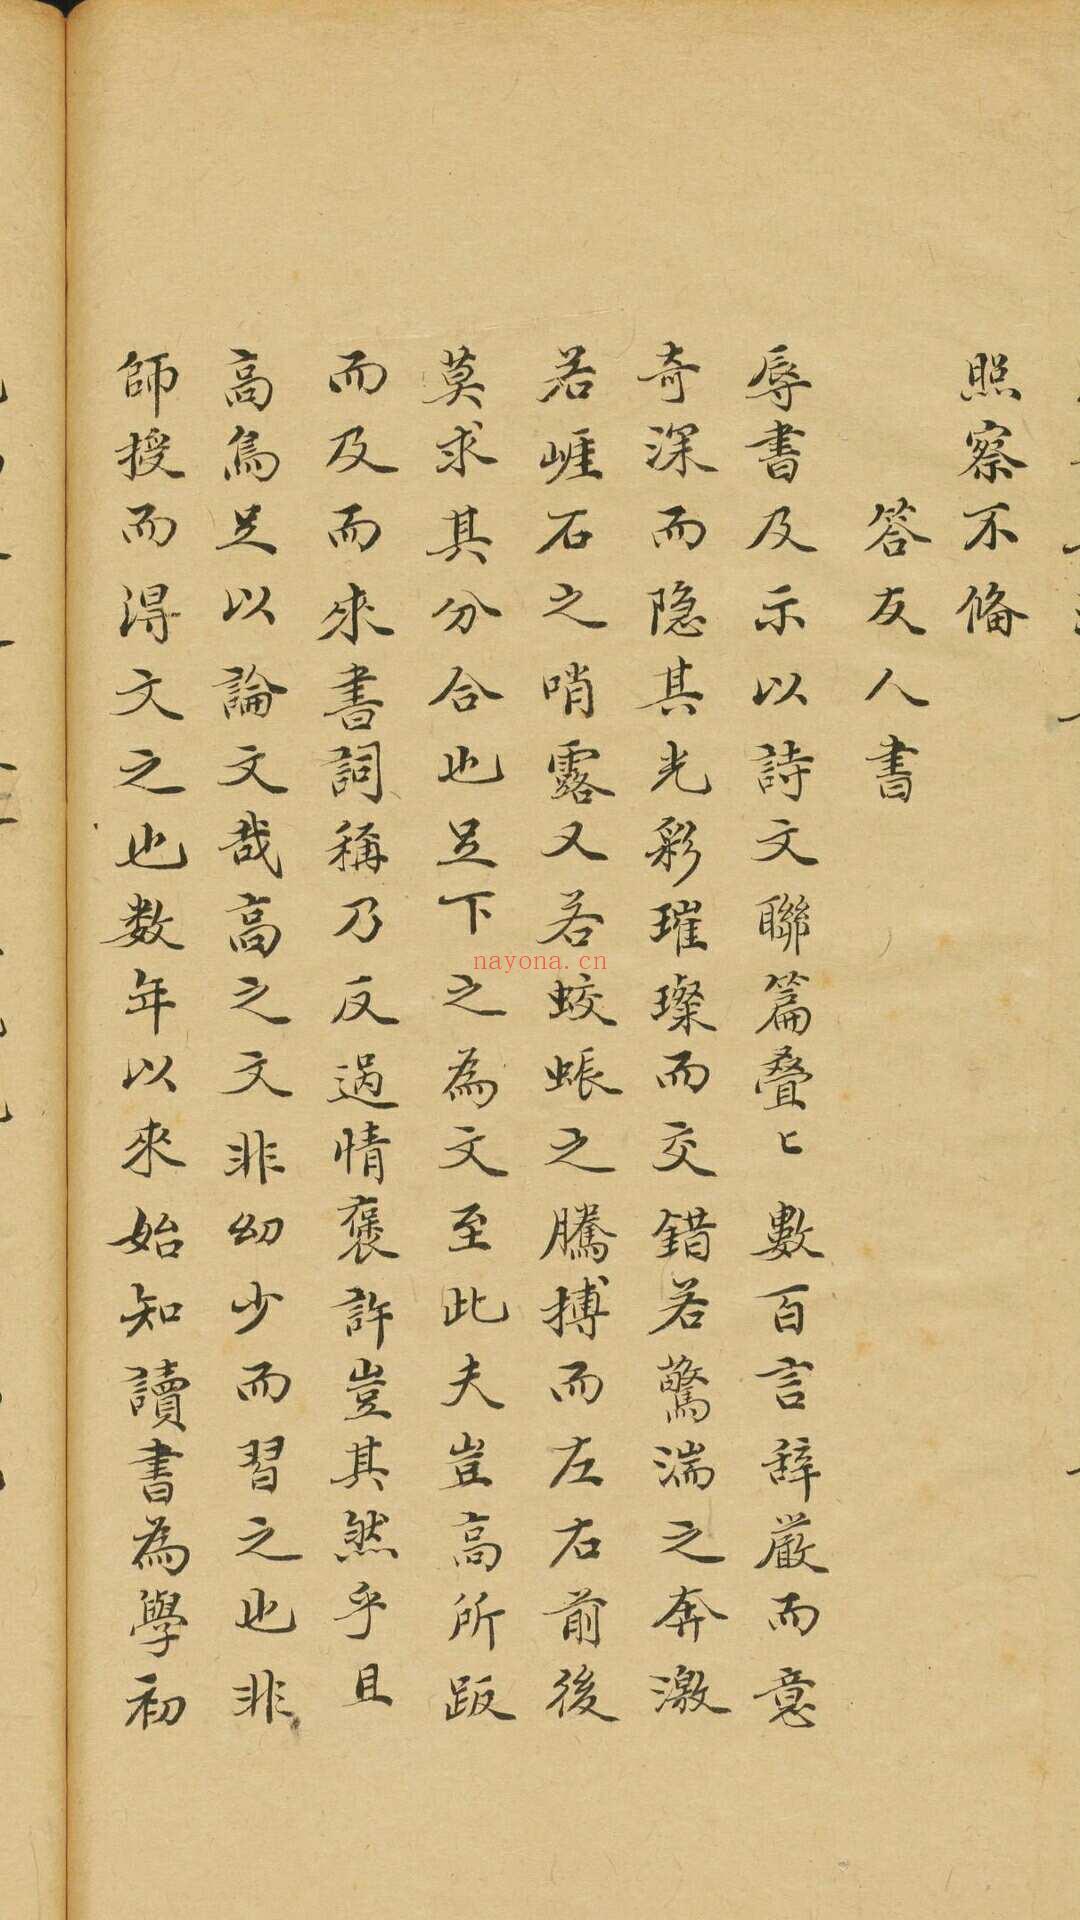 照察不偹
答友人書
辱書及示以詩文聯篇疊〻數百言辞嚴而意
奇深而隐其光彩璀璨而交錯若驚湍之奔激
若崕石之哨露又若蛟蜧之騰搏而左右前後
莫求其分合也足下之為文至此夫豈高所跂
而及而來書詞稱乃反過情褒許豈其然乎且
高焉足以論文哉高之文非幼少而習之也非
師授而淂文之也数年以來始知讀書為學初
nayona.cn